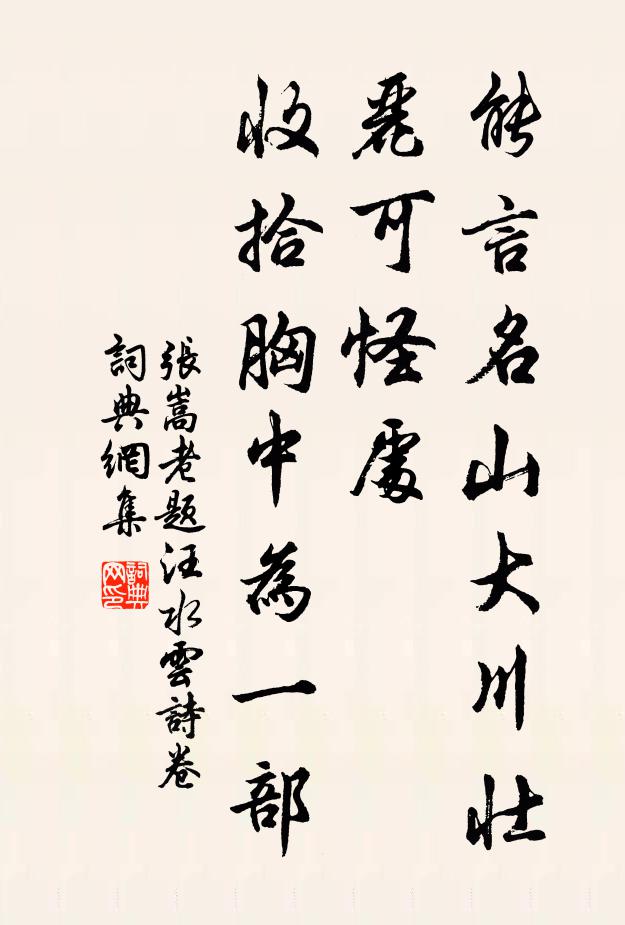 能言名山大川壯
麗可怪處
收拾胸中為一部
張嵩老題汪水雲詩卷
詞典網集
詞典
网印